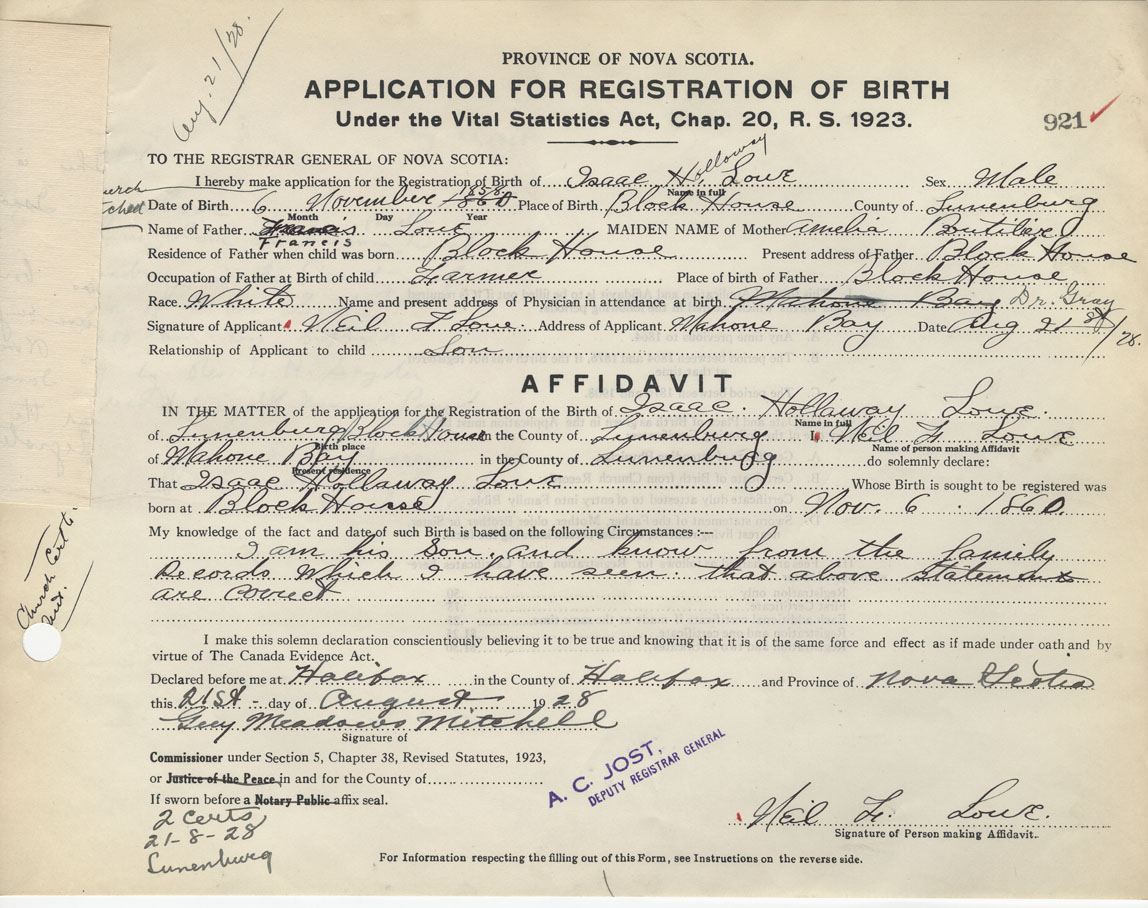 Aug. 21/28.
PROVINCE OF NOVA SCOTIA.
APPLICATION FOR REGISTRATION OF BIRTH
Under the Vital Statistics Act, Chap. 20, R. S. 1923.
921
TO THE REGISTRAR GENERAL OF NOVA SCOTIA:
Holloway
I hereby make application for the Registration of Birth of Isaac H. Lowe Sex Male
Name in full
1858
Date of Birth 6 November 1860 Place of Birth Block House County of Lunenburg
Month Day Year
Name of Father Francis Lowe MAIDEN NAME of Mother Amelia Boutilier
Francis
Residence of Father when child was born Block House Present address of Father Block House
Occupation of Father at Birth of child Farmer Place of birth of Father Block House
Race White Name and present address of Physician in attendance at birth Mahone Bay Dr. Gray
Signature of Applicant Neil F Lowe. Address of Applicant Mahone Bay Date Aug 21st/28.
Relationship of Applicant to child Son
AFFIDAVIT
IN THE MATTER of the application for the Registration of the Birth of Isaac. Hollaway Lowe.
Name in full
of Lunenburg Block House in the County of Lunenburg I, Neil F. Lowe
Birth place Name of person making Affidavit
of Mahone Bay in the County of Lunenburg do solemnly declare:
Present residence
That Isaac Hollaway Lowe Whose Birth is sought to be registered was
born at Block House on Nov. 6. 1860.
My knowledge of the fact and date of such Birth is based on the following Circumstances :—
I am his son. and know from the family
Records which I have seen. that above statements
are correct
Church Cert.
I make this solemn declaration conscientiously believing it to be true and knowing that it is of the same force and effect as if made under oath and by
virtue of The Canada Evidence Act.
Declared before me at Halifax in the County of Halifax and Province of Nova Scotia
this 21st - day of August 1928
Guy Meadows Mitchell
Signature of
Commissioner under Section 5, Chapter 38, Revised Statutes, 1923,
or Justice of the Peace in and for the County of
If sworn before a Notary Public affix seal.
A. C. JOST,
DEPUTY REGISTRAR GENERAL
2 certs
21-8-28
Lunenburg
Neil F. Lowe.
Signature of Person making Affidavit.
For Information respecting the filling out of this Form, see Instructions on the reverse side.